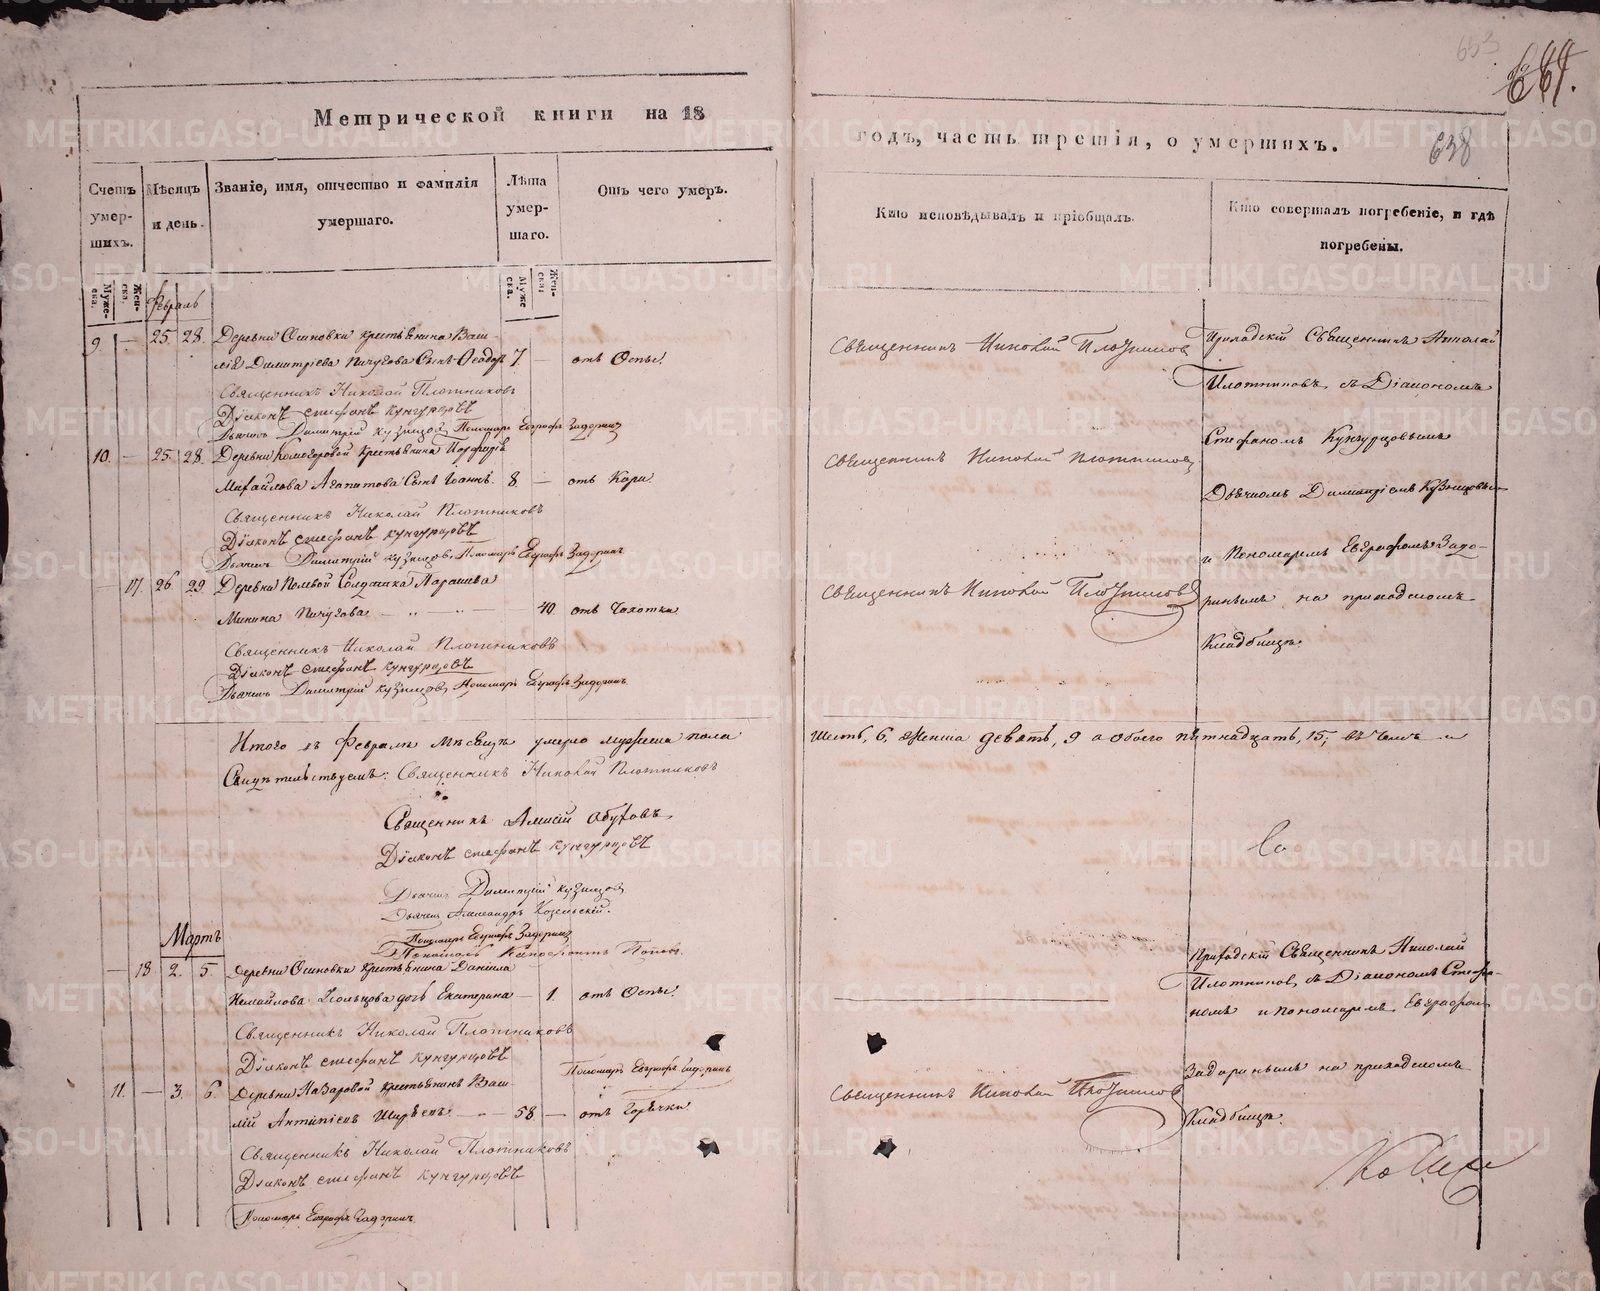 653
664.
638
Метрической книги на 18
годъ, часть третія, о умершихъ.
Счетъ умер-
шихъ.
Мѣсяцъ
и день.
Званіе, имя, отчество и фамилія
умершаго.
Лѣта
умер-
шаго.
Отъ чего умеръ.
Кто исповѣдывалъ и пріобщалъ.
Кто совершалъ погребеніе, и гдѣ
погребены.
Муже-
ска.
Жен-
ска.
Муже
ска.
Жен-
ска.
Февраль
9. — 25. 28. Деревни Осиновки крестьянина Васи-
лія Димитріева Пичугова Сынъ Ѳеодоръ 7. — отъ Оспы.
Священникъ Николай Плотниковъ
Діаконъ Стефанъ Кунгурцовъ
Дьячекъ Димитрій Кузнецовъ Пономарь Евграфъ Задоринъ
Священникъ Николай Плотниковъ
Приходскій Священникъ Николай
Плотниковъ съ Діакономъ
Стефаномъ Кунгурцовымъ
Дьячкомъ Димитріемъ Кузнецовымъ
и Пономаремъ Евграфомъ Задо-
ринымъ на приходскомъ
Кладбищѣ.
10. — 25. 28. Деревни Комогоровой Крестьянина Порфирія
Михайлова Агапитова Сынъ Іоаннъ. 8. — отъ Кори
Священникъ Николай Плотниковъ
Діаконъ Стефанъ Кунгурцовъ
Дьячекъ Димитрій Кузнецовъ, Пономарь Евграфъ Задоринъ
Священникъ Николай Плотниковъ
— 17. 26 29 Деревни Полевой Солдатка
Минина Пичугова — 40. отъ Чахотки
Священникъ Николай Плотниковъ
Діаконъ Стефанъ Кунгурцовъ
Дьячекъ Димитрій Кузнецовъ, Пономарь Евграфъ Задоринъ
Священникъ Николай Плотниковъ
Итого въ Февралѣ Мѣсяцѣ умерло мужеска пола
шесть, 6, женска девять, 9 а обоего пятнадцать, 15, въ чемъ и
Свидѣтельствуемъ: Священникъ Николай Плотниковъ
Священникъ Алексій Обуховъ
Діаконъ Стефанъ Кунгурцовъ
Дьячекъ Димитрій Кузнецовъ
Дьячекъ Александръ Козельскій.
Пономарь Евграфъ Задоринъ
Пономарь Поповъ.
Мартъ
— 18 2. 5. Деревни Осиновки крестьянина Даніила
дочь Екатерина — 1. отъ Оспы.
Священникъ Николай Плотниковъ
Діаконъ Стефанъ Кунгурцовъ
Пономарь Евграфъ Задоринъ
Приходскій Священникъ Николай
Плотниковъ, съ Діакономъ Стефа-
номъ и Пономаремъ Евграфомъ
Задоринымъ на приходскомъ
Кладбищѣ.
11. — 3. 6 Деревни Назаровой крестьянинъ Васи-
лій Антипіевъ — 58. — отъ Горячки
Священникъ Николай Плотниковъ
Діаконъ Стефанъ Кунгурцовъ
Пономарь Евграфъ Задоринъ
Священникъ Николай Плотниковъ
METRIKI.GASO-URAL.RU